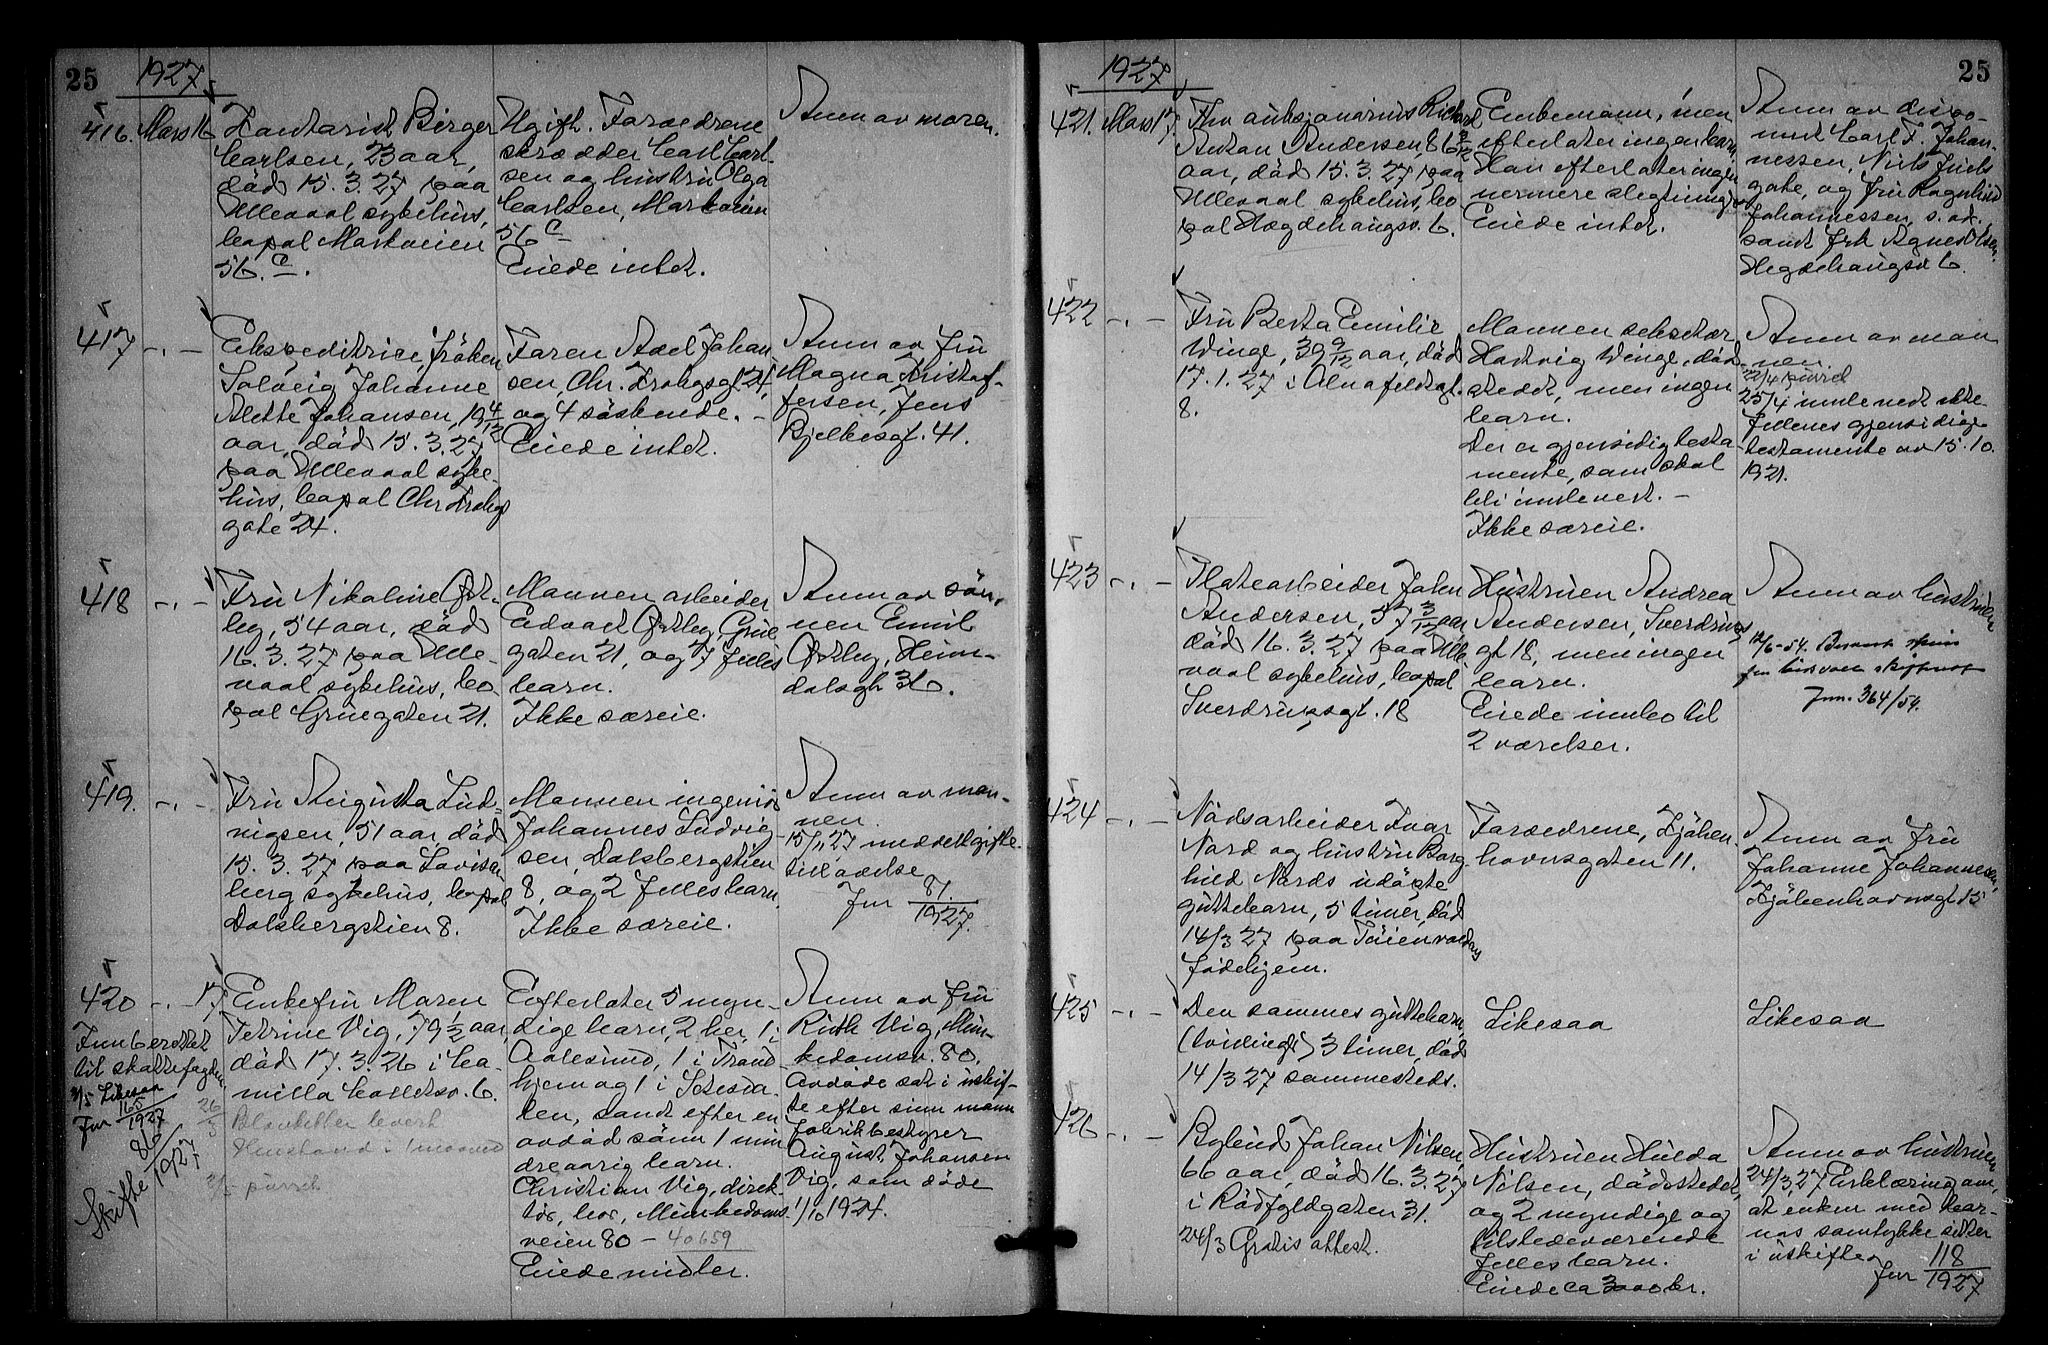 25
1927
416. Mars 16
Kontorist Birger
Carlsen, 23 aar,
död 15.3.27 paa
Ullevaal sykehus,
bopæl Markveien
56.c.
Ugift. Forældrene
skrædder Carl Carl-
sen og hustru Olga
Carlsen, Markveien
56c
Eiede intet.
Anm av moren.
417 -.-
Ekspeditrice, fröken
Solveig Johanne
Alette Johansen, 19 4/12
aar, död 15.3.27
paa Ullevaal syke-
hus, bopæl Chr Krohgs
gate 24.
Faren Axel Johan
sen, Chr. Krohgsgt 24,
og 4 söskende. -
Eiede intet.
Anm av fru
Magna Kristof-
fersen, Jens
Bjelkesgt. 41.
418 -.-
Fru Nikoline Øst-
by, 54 aar, död
16.3.27 paa Ulle-
vaal sykehus, bo-
pæl Grüegaten 21.
Mannen arbeider
Edvart Østby, Grüe
gaten 21, og 7 fælles
barn.
Ikke særeie.
Anm av sön-
nen Emil
Østby, Heim-
dalsgt 36.
419. -.-
Fru Augusta Lud-
vigsen, 51 aar död
15.3.27 paa Lovisen
berg sykehus, bopæl
Dalsbergstien 8.
Mannen ingeniör
Johannes Ludvig-
sen, Dalsbergstien
8, og 2 fælles barn.
Ikke særeie.
Anm av man-
nen.
15/11 27 meddelt gifte-
tilladelse
Jnr 81/1927.
420 -.- 17
Enkefru Maren
Petrine Vig, 79 1/2 aar,
död 17.3.26 i Ca-
milla Colletsv. 6.
Innberettet
til skattefogden
3/5 Likesaa
Jnr 165/1927
Skifte 86/1927
26/3
Blanketter levert
Henstand i 1 maaned
purret
Efterlater 5 myn-
dige barn, 2 her, 1 i
Aalesund, 1 i Trond
hjem og 1 i Setesda-
len, samt efter en
avdöd sönn 1 min
dreaarig barn.
Christian Vig, direk-
tör, bor, Munkedams-
veien 80 - 40659
Eiede midler.
Anm av fru
Ruth Vig, Mun-
kedamsv. 80.
Avdöde sat i uskif-
te efter sinn mann
fabrikbestyrer
August Johansen
Vig, som döde
1/10 1924.
25
1927
421. Mars 17.
Fhv auksjonarius Richard
Anton Andersen, 86 2/12
aar, död 15.3.27 paa
Ullevaal sykehus, bo
pæl Hægdehaugsv. 6.
Enkemann, men
efterlater ingen barn.
Han efterlater ingen
nermere slegtninger
Eiede intet.
Anm av dispo-
nent Carl F. Johan-
nessen, Niels Juels
gate, og fru Ragnhild
Johannessen, s.st.
samt frk Agnes Olsen,
Hegdehaugsv 6.
422 -.-
Fru Berta Emilie
Winge, 39 9/12 aar, död
17.1.27 i Arnafeldtsgt.
8.
Mannen sekretær
Hartvig Winge, död-
stedet, men ingen
barn.
Der er gjensidig testa
mente, som skal
bli innlevert. -
Ikke særeie.
Anm av man
nen
22/4 purret
25/4 innlevert ekte-
fellenes gjensidige
testamente av 15.10.
1921.
423 -.-
Platearbeider John
Andersen, 57 3/12 aar,
död 16.3.27 paa Ulle
vaal sykehus, bopæl
Sverdrupsgt. 18
Hustruen Andrea
Andersen, Sverdrups
gt 18, men ingen
barn.
Eiede innbo til
2 værelser.
Anm av hustruen
12/6-54.
Jnr. 364/54.
424 -.-
Nödsarbeider Ivar
Nord og hustru Borg
hild Nords udöpte
guttebarn, 5 timer, död
14/3 27 paa Töienvoldens
fødehjem.
Forældrene, Kjöben
havnsgaten 11.
Anm av fru
Johanne Johannesen,
Kjöbenhavnsgt 15
425 -.-
Den sammes guttebarn,
(tvilling) 3 timer, död
14/3 27 sammesteds.
Likesaa
Likesaa
426 -.-
Bybud Johan Nilsen,
66 aar, död 16.3.27
i Rödfyldgaten 31.
24/3 Gratis attest.
Hustruen Hulda
Nilsen, dödsstedet,
og 2 myndige og
tilstedeværende
fælles barn.
Eiede ca 3000 kr.
Anm av hustruen
24/3 27 Erklæring om,
at enken med bar-
nas samtykke sitter
i uskifte
Jnr 118/1927